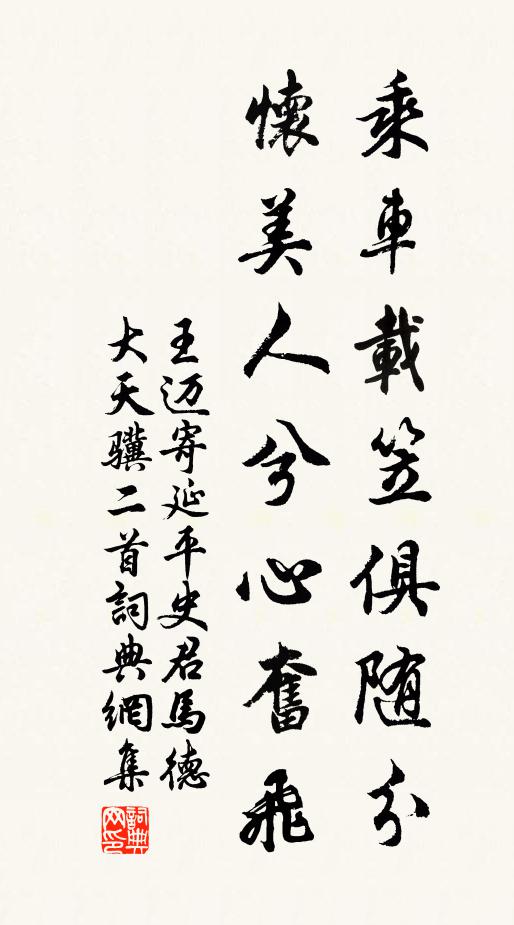 乘車載笠俱随分
懷美人兮心奮飛
王迈寄延平史君馬德
大天驥二首詞典網集
詞典网印